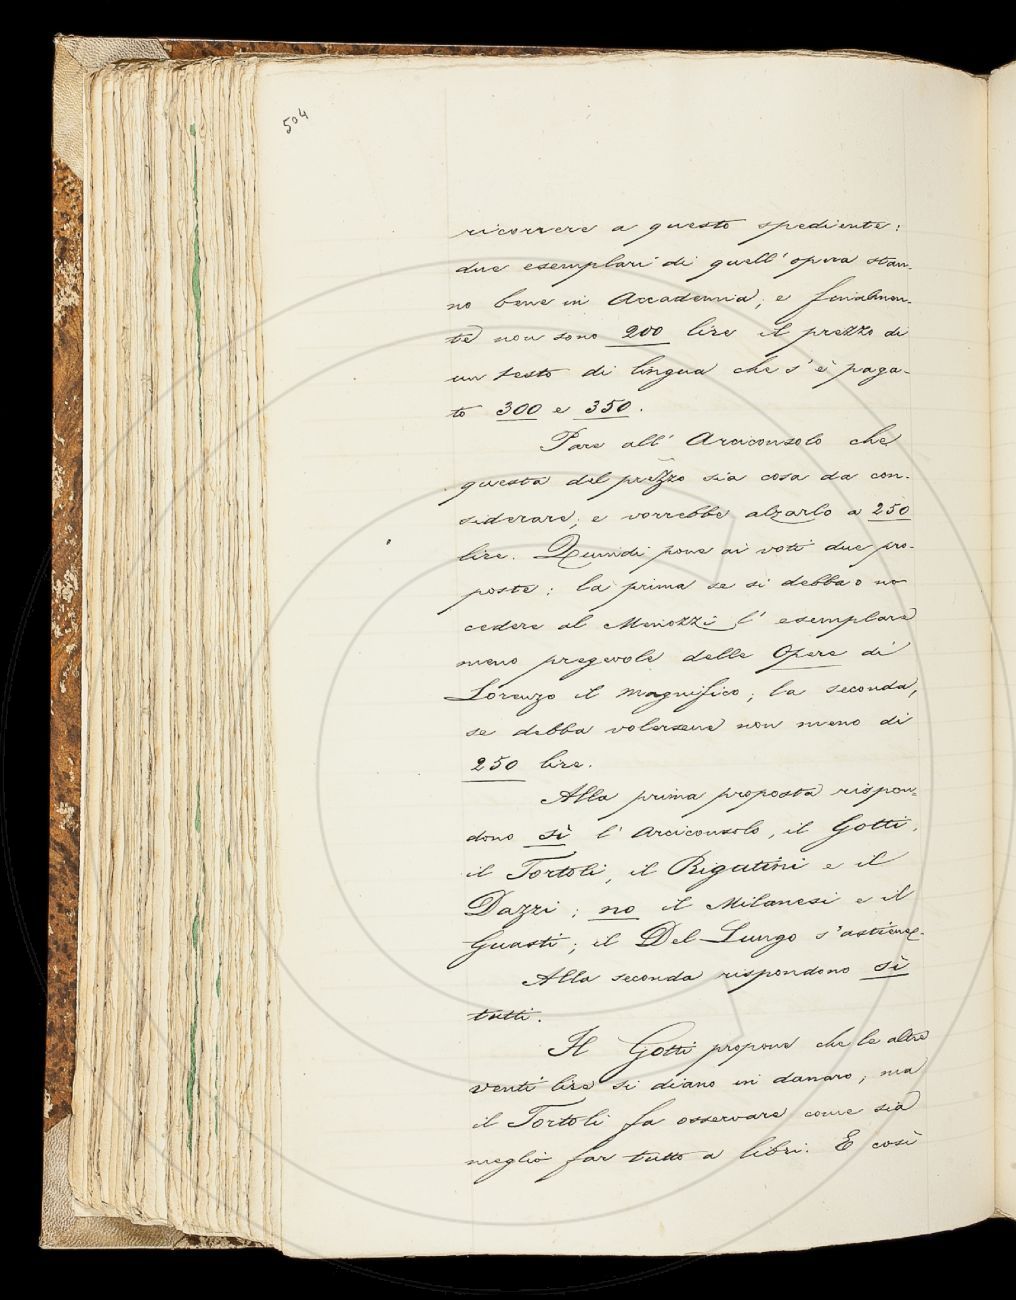 504
ricorrere a questo spediente:
due esemplari di quell'opera stan-
no bene in Accademia; e finalmen-
te non sono 200 lire il prezzo di
un testo di lingua che s'è paga-
to 300 e 350.
Pare all'Arciconsolo che
questa del prezzo sia cosa da con-
siderare; e vorrebbe alzarlo a 250
lire. Quindi pone ai voti due pro-
poste: la prima se si debba o no
cedere al Menozzi l'esemplare
meno pregevole delle Opere di
Lorenzo il magnifico; la seconda,
se debba volersene non meno di
250 lire.
Alla prima proposta rispon-
dono sì l'Arciconsolo, il Gotti,
il Tortoli, il Rigutini e il
Dazzi; no il Milanesi e il
Guasti; il Del Lungo s'astiene.
Alla seconda rispondono sì
tutti.
Il Gotti propone che le altre
venti lire si diano in danaro; ma
il Tortoli fa osservare come sia
meglio far tutto a libri. E così